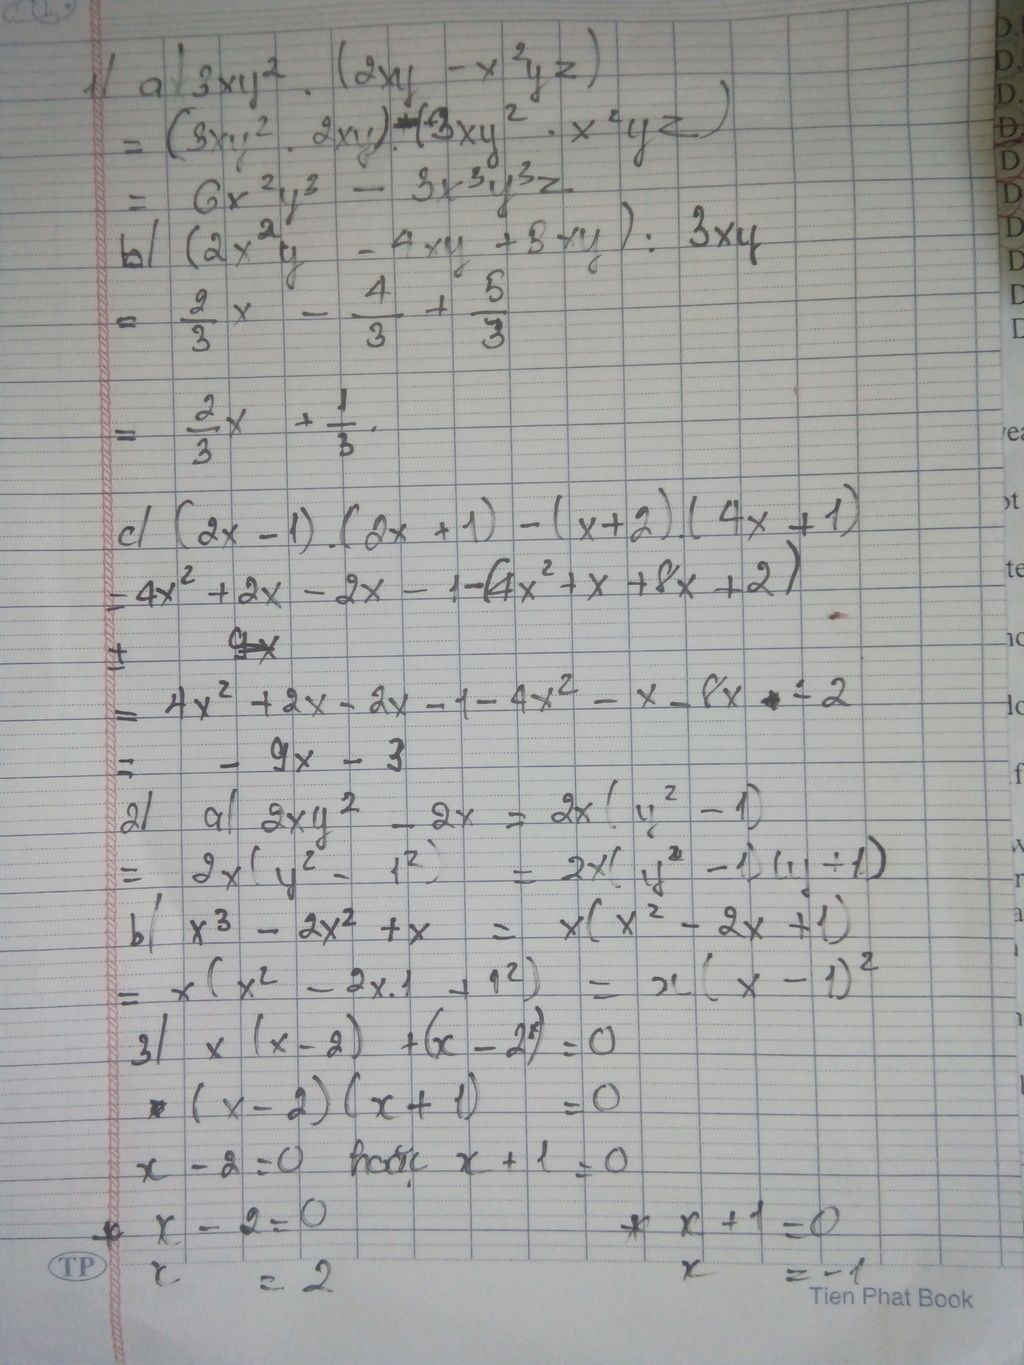 1/ a/ 3xy² . (2xy - x²yz)
= (3xy² . 2xy) - (3xy² . x²yz)
= 6x²y³ - 3x³y³z
b/ (2x²y - 4xy + 5xy) : 3xy
= 2/3 x - 4/3 + 5/3
= 2/3 x + 1/3.
c/ (2x - 1).(2x + 1) - (x + 2).(4x + 1)
= 4x² + 2x - 2x - 1 - (4x² + x + 8x + 2)
= 4x² + 2x - 2x - 1 - 4x² - x - 8x - 2
= - 9x - 3
2/ a/ 2xy² - 2x = 2x(y² - 1)
= 2x(y² - 1²) = 2x(y - 1)(y + 1)
b/ x³ - 2x² + x = x(x² - 2x + 1)
= x(x² - 2x.1 + 1²) = x(x - 1)²
3/ x(x - 2) + (x - 2) = 0
(x - 2)(x + 1) = 0
x - 2 = 0 hoặc x + 1 = 0
* x - 2 = 0 * x + 1 = 0
x = 2 x = -1
TP
Tien Phat Book